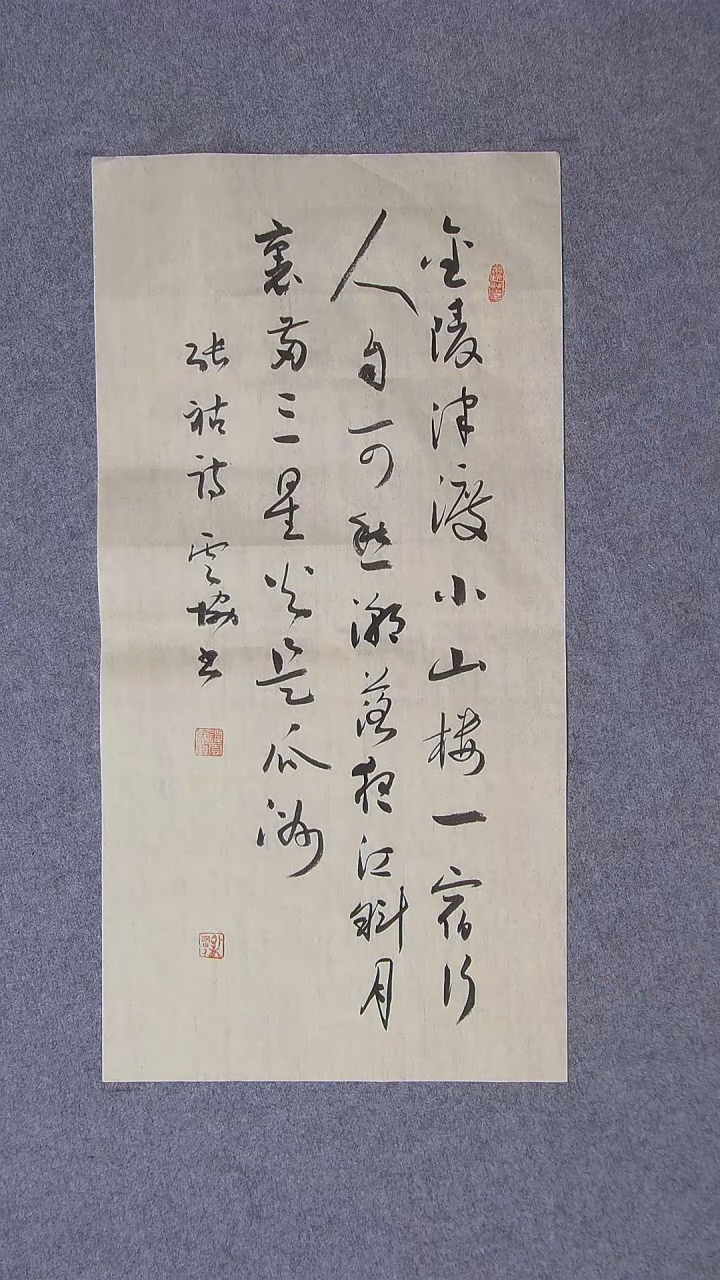 金陵津渡小山楼一宿行
人自可愁潮落夜江斜月
裏两三星火是瓜洲
张祜诗雲书